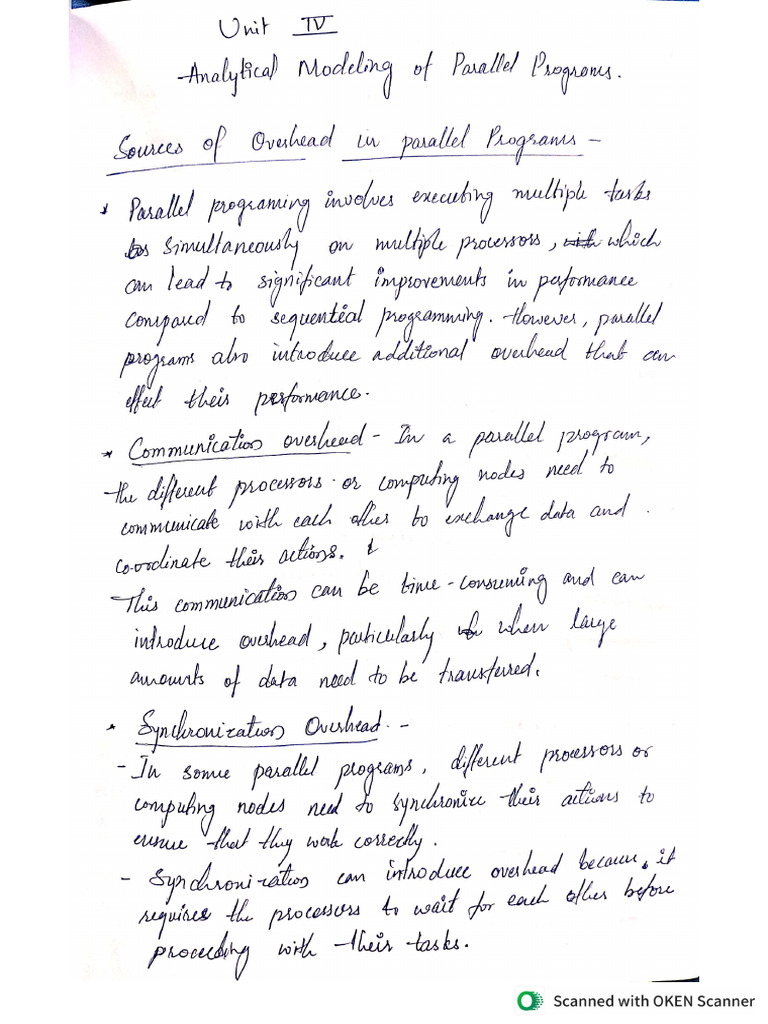 Unit IV
Analytical Modeling of Parallel Programs.
Sources of Overhead in parallel Programs -
* Parallel programing involves executing multiple tasks
simultaneously on multiple processors, which
can lead to significant improvements in performance
compared to sequential programming. However, parallel
programs also introduce additional overhead that can
effect their performance.
* Communication overhead - In a parallel program,
the different processors or computing nodes need to
communicate with each other to exchange data and
co-ordinate their actions.
This communication can be time-consuming and can
introduce overhead, particularly when large
amounts of data need to be transferred.
* Synchronization Overhead. -
- In some parallel programs, different processors or
computing nodes need to synchronize their actions to
ensure that they work correctly.
- Synchronization can introduce overhead because, it
requires the processors to wait for each other before
proceeding with their tasks.
Scanned with OKEN Scanner